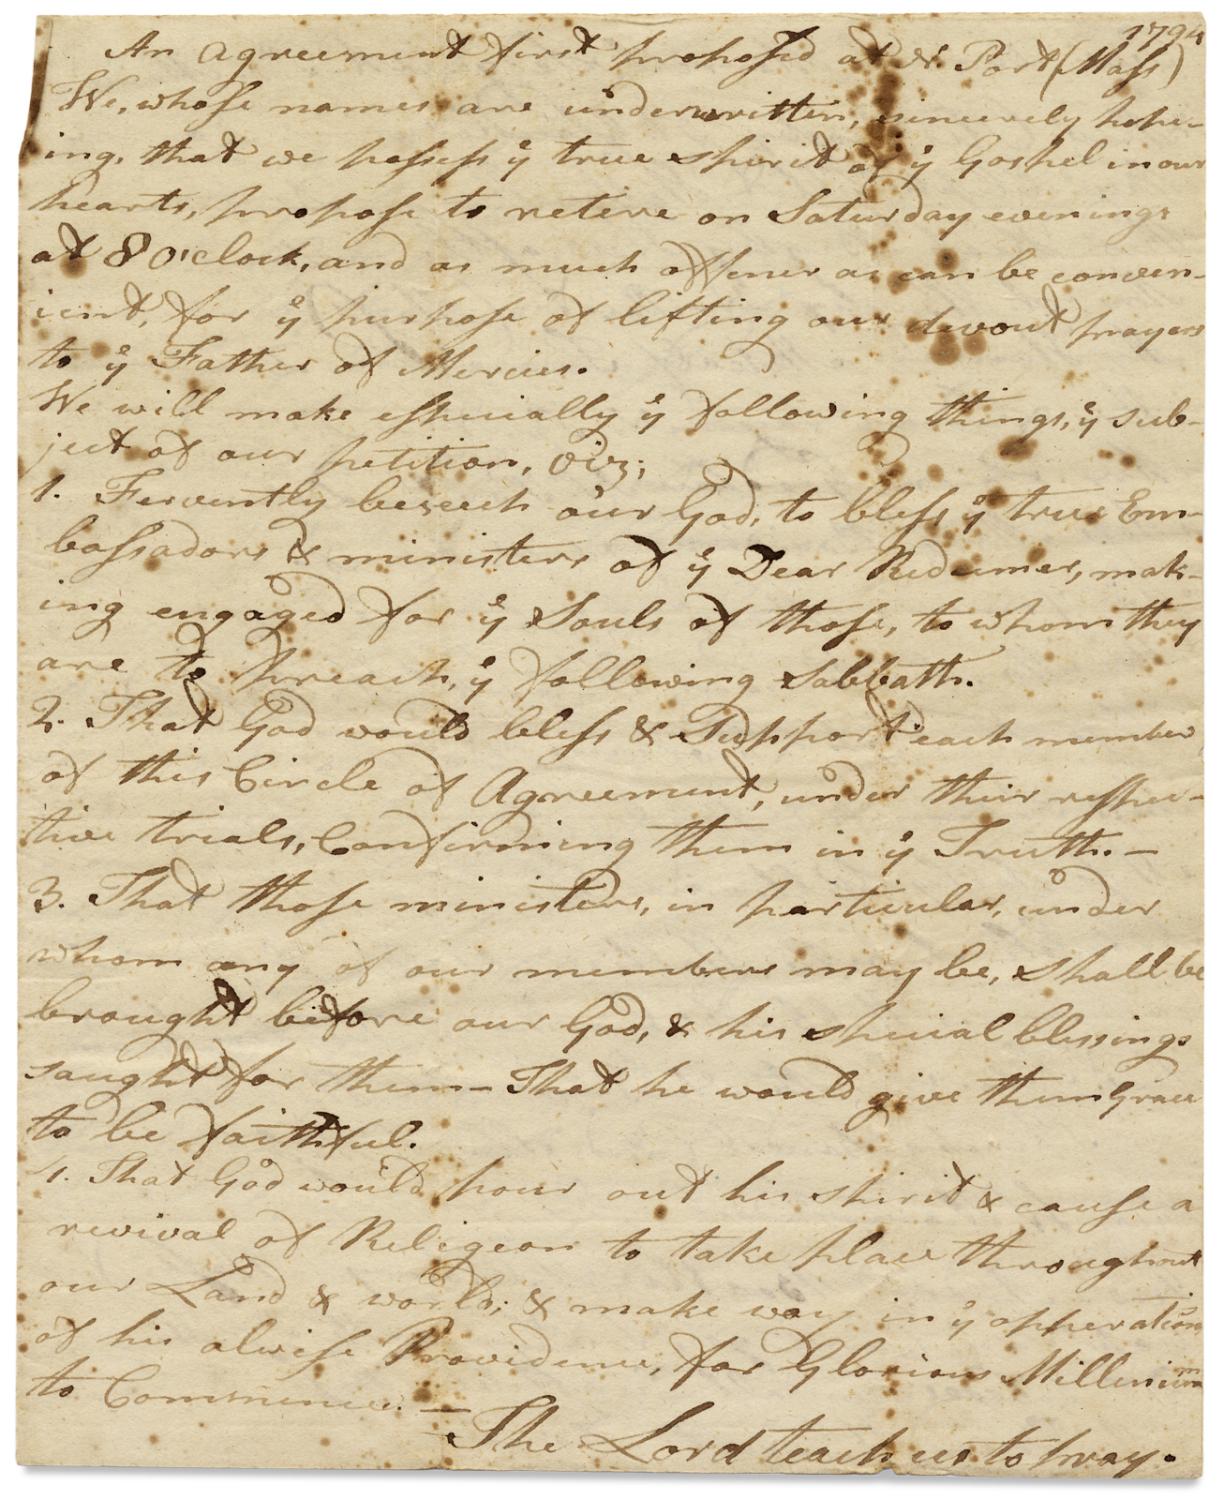 1794
An Agreement first proposed at N. Port (Mass)
We, whose names are underwritten, sincerely hope-
ing, that we possess ye true spirit of ye Gospel in our
hearts, propose to retere on Saturday evenings
at 8 o'clock, and as much oftener as can be conven-
ient, for ye purpose of lifting our devout prayers
to ye Father of Mercies.
We will make especially ye following things, ye sub-
ject of our petition, viz;
1. Fervently beseech our God, to bless ye true Em-
bassadors & ministers of ye Dear Redeemer, mak-
ing engaged for ye Souls of those, to whom they
are to preach, ye following Sabbath.
2. That God would bless & Support each member
of this Circle of Agreement, under their respec-
tive trials, Confirming them in ye Truth. —
3. That those ministers, in particular, under
whom any of our members may be, shall be
brought before our God, & his special blessings
saught for them — That he would give them Grace
to be faithful.
4. That God would pour out his spirit & cause a
revival of Religeon to take place throughout
our Land & world; & make way in ye opperations
of his alwise Providence, for Glorious Millenium
to Commence. —
The Lord teach us to pray.